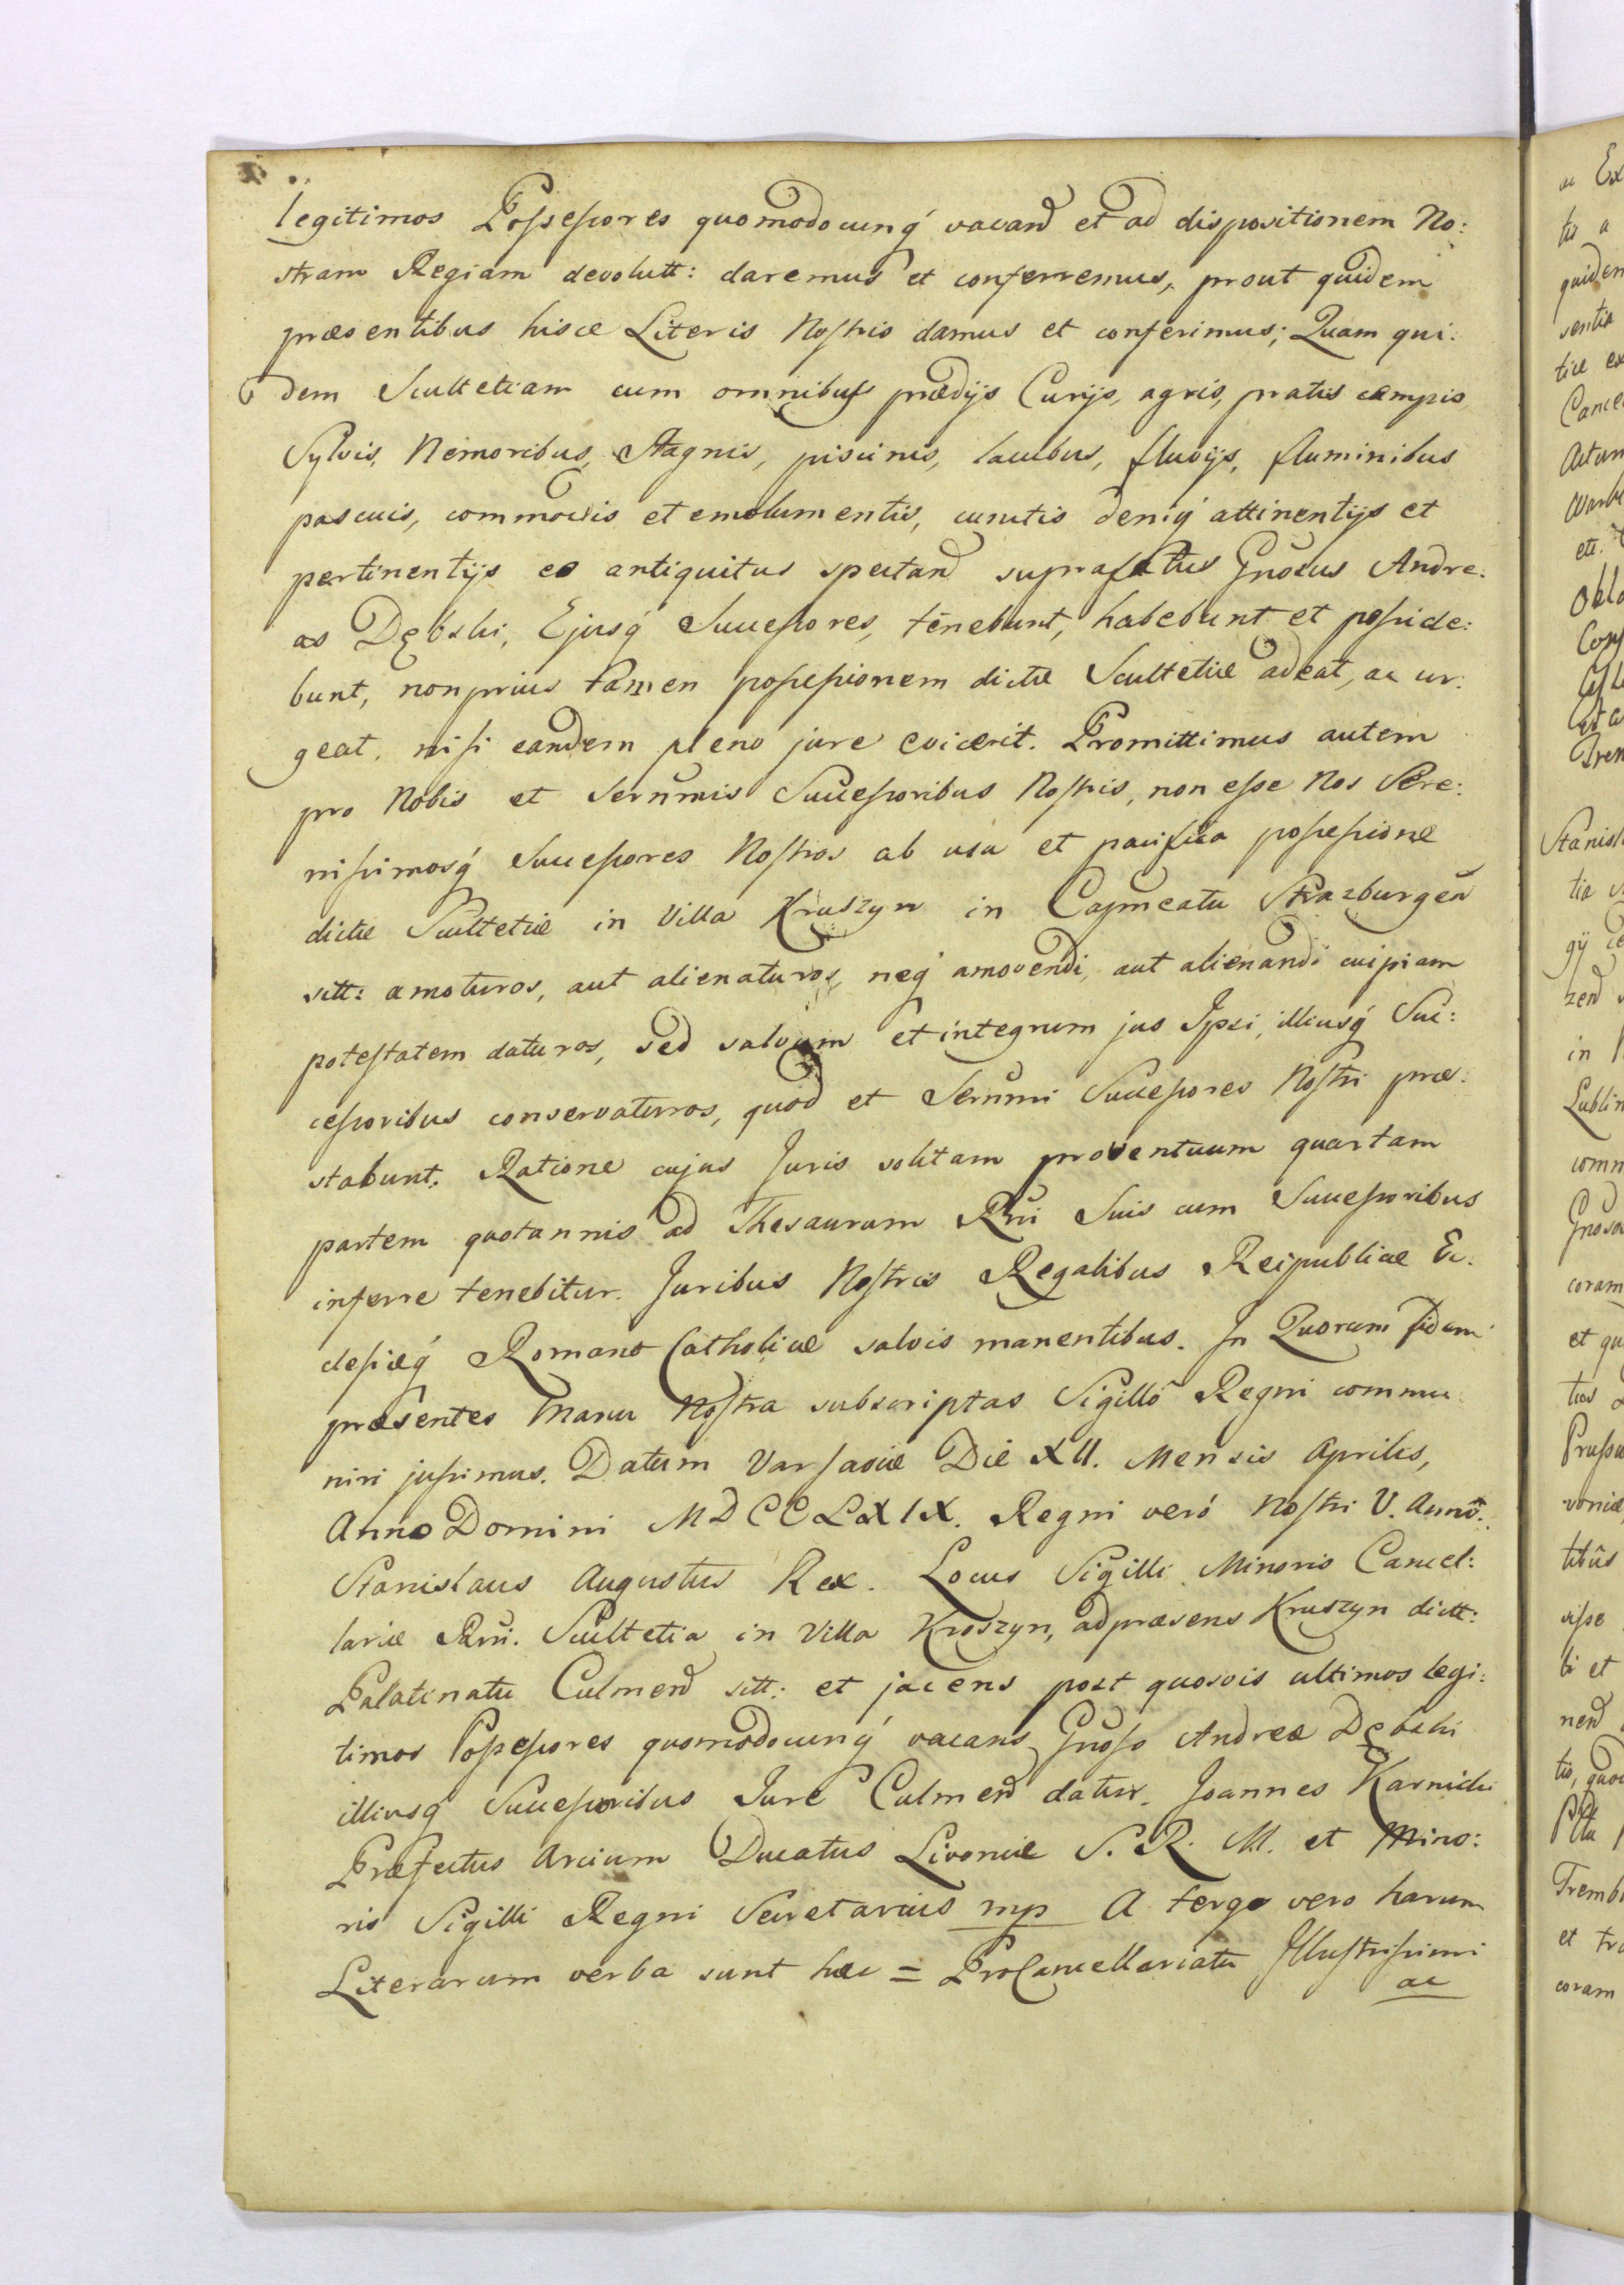 legitimos Possessores quomodocunq́ vacand et ad dispositionem No:
stram Regiam devolutt: daremus et conferremus, prout quidem
præsentibus hisce Literis Nostris damus et conferimus; Quam qui:
dem Scultetiam cum omnibus prædijs Curijs, agris, pratis campis
Sylvis, Nemoribus, Stagnis, piscinis, lacubus, fluvijs, fluminibus
pascuis, commodis et emolumentis, cunctis deniq́ attinentijs et
pertinentijs eo antiquitus spectand suprafatus Gnosus Andre:
as Dębski, Ejusq́ Successores, tenebunt, habebunt et posside:
bunt, non prius tamen possessionem dictæ Scultetiæ adeat, ac ur:
geat, nisi eandem pleno jure evicerit. Promittimus autem
pro Nobis et Serenm̃is Successoribus Nostris, non esse Nos Sere:
nissimosq́ Successores Nostros ab usu et pacifica possessione
dictæ Scultetiæ in Villa Kruszyn in Cap̃neatu Strazburgeñ
sitt: amoturos, aut alienaturos, neq́ amovendi, aut alienandi cuipiam
potestatem daturos, sed salvum et integrum jus Ipsi, illiusq́ Suc:
cessoribus conservaturos, quod et Serñmi Successores Nostri præ:
stabunt. Ratione cujus Juris solitam proventuum quartam
partem quotannis ad Thesaurum Rñi Suis cum Successoribus
inferre tenebitur. Juribus Nostris Regalibus Reipublicæ Ec:
clesiæq́ Romano Catholicæ salvis manentibus. In Quorum fidem
præsentes Manu Nostra subscriptas Sigilló Regni commu
niri jussimus. Datum Varsaviæ Die XII. Mensis Aprilis,
Anno Domini MDCCLXIX. Regni veró Nostri V. Anno.
Stanislaus Augustus Rex. Locus Sigilli Minoris Cancel:
lariæ Rñi. Scultetia in Villa Kroszyn, ad præsens Kruszyn dictt:
Palatinatu Culmend sitt: et jacens post quosvis ultimos legi:
timos Possessores quomodocunq́ vacans Gnoso Andreæ Dębski
illiusq́ Successoribus Jure Culmend datur. Joannes Karnicki
Præfectus Arcium Ducatus Livoniæ S. R. M. et Mino:
ris Sigilli Regni Secretarius mp A tergo vero harum
Literarum verba sunt hæc = ProCancellariatu Illustrissimi
ac